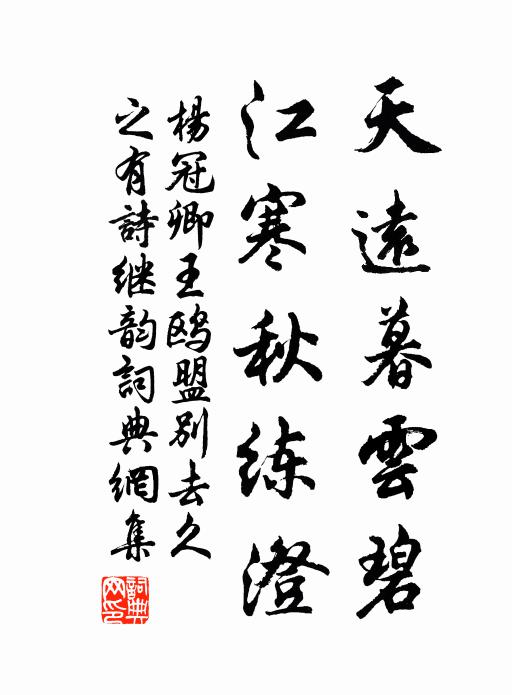 天遠暮雲碧
江寒秋练澄
楊冠卿王鸥盟别去久
之有詩继韵詞典網集
詞典
网印